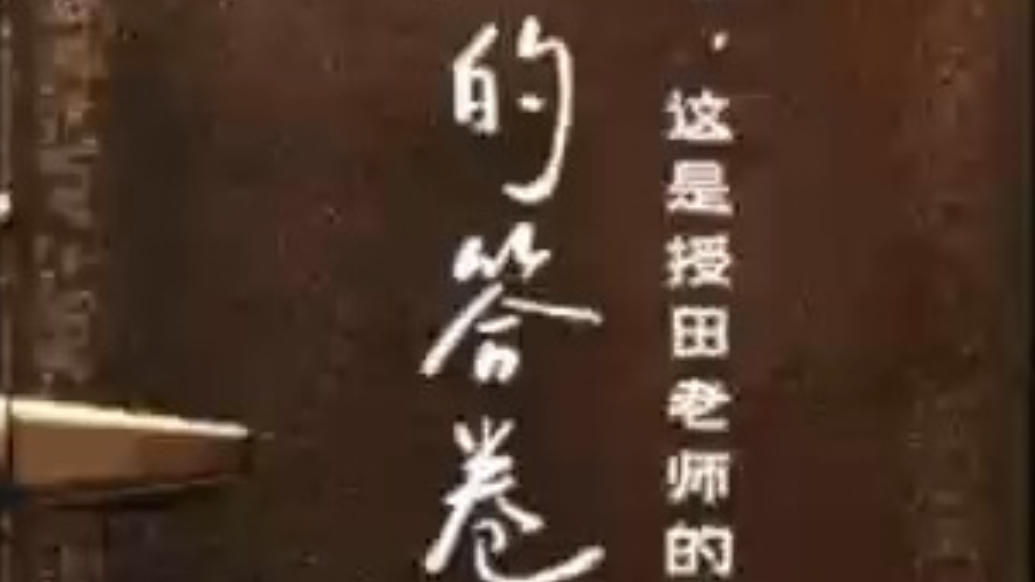 这是授田老师的
的答卷